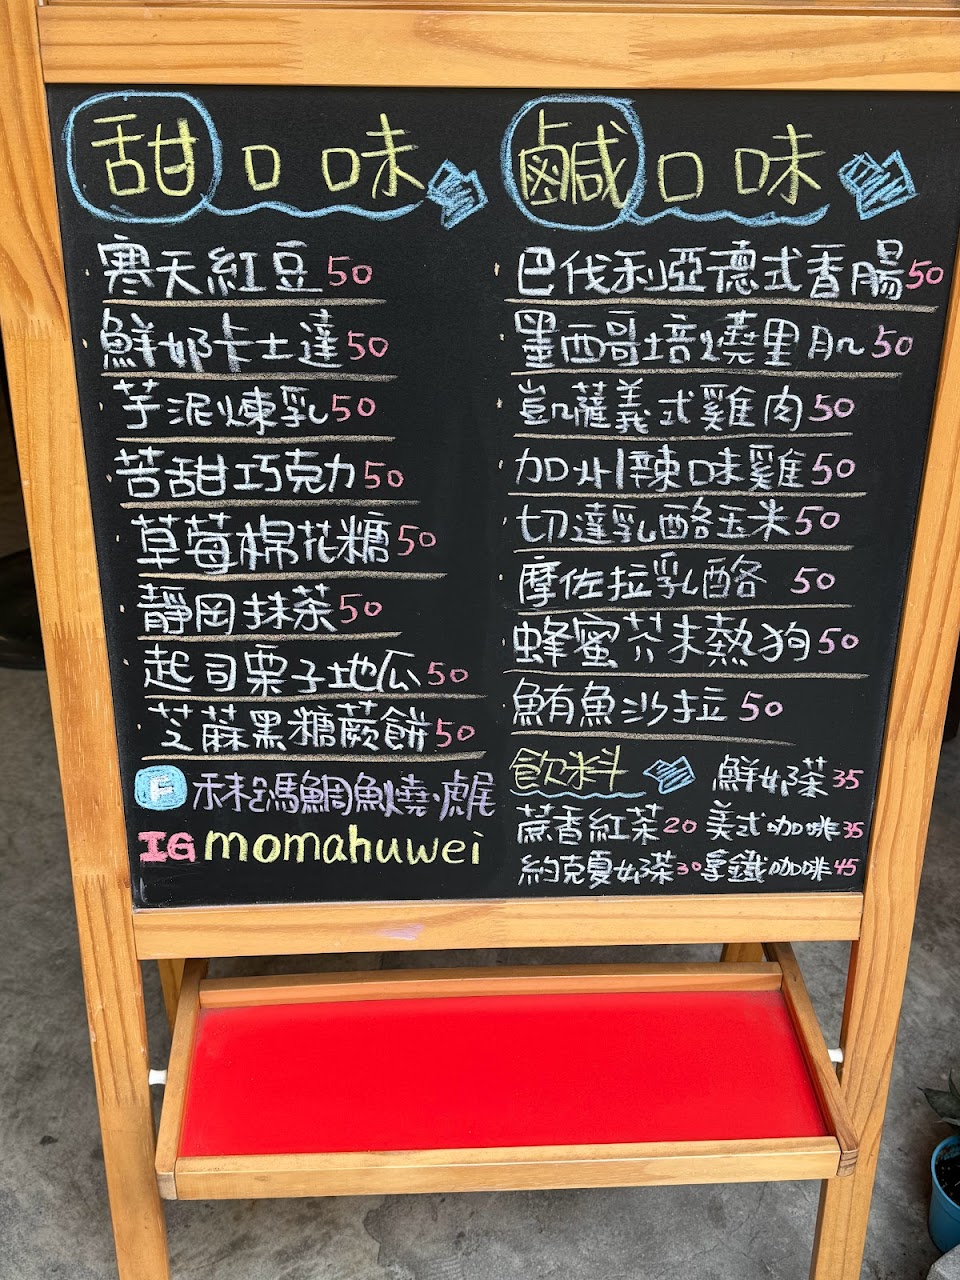 甜口味
寒天紅豆50
鮮奶卡士達50
芋泥煉乳50
苦甜巧克力50
草莓棉花糖50
靜岡抹茶50
起司栗子地瓜50
芝蔴黑糖蕨餅50
F 秣瑪鯛魚燒.虎尾
IG momahuwei
鹹口味
巴伐利亞德式香腸50
墨西哥培燒里肌50
凱薩義式雞肉50
加州辣味雞50
切達乳酪玉米50
摩佐拉乳酪 50
蜂蜜芥末熱狗50
鮪魚沙拉50
飲料
鮮奶茶35
蔗香紅茶20 美式咖啡35
約克夏奶茶30 拿鐵咖啡45